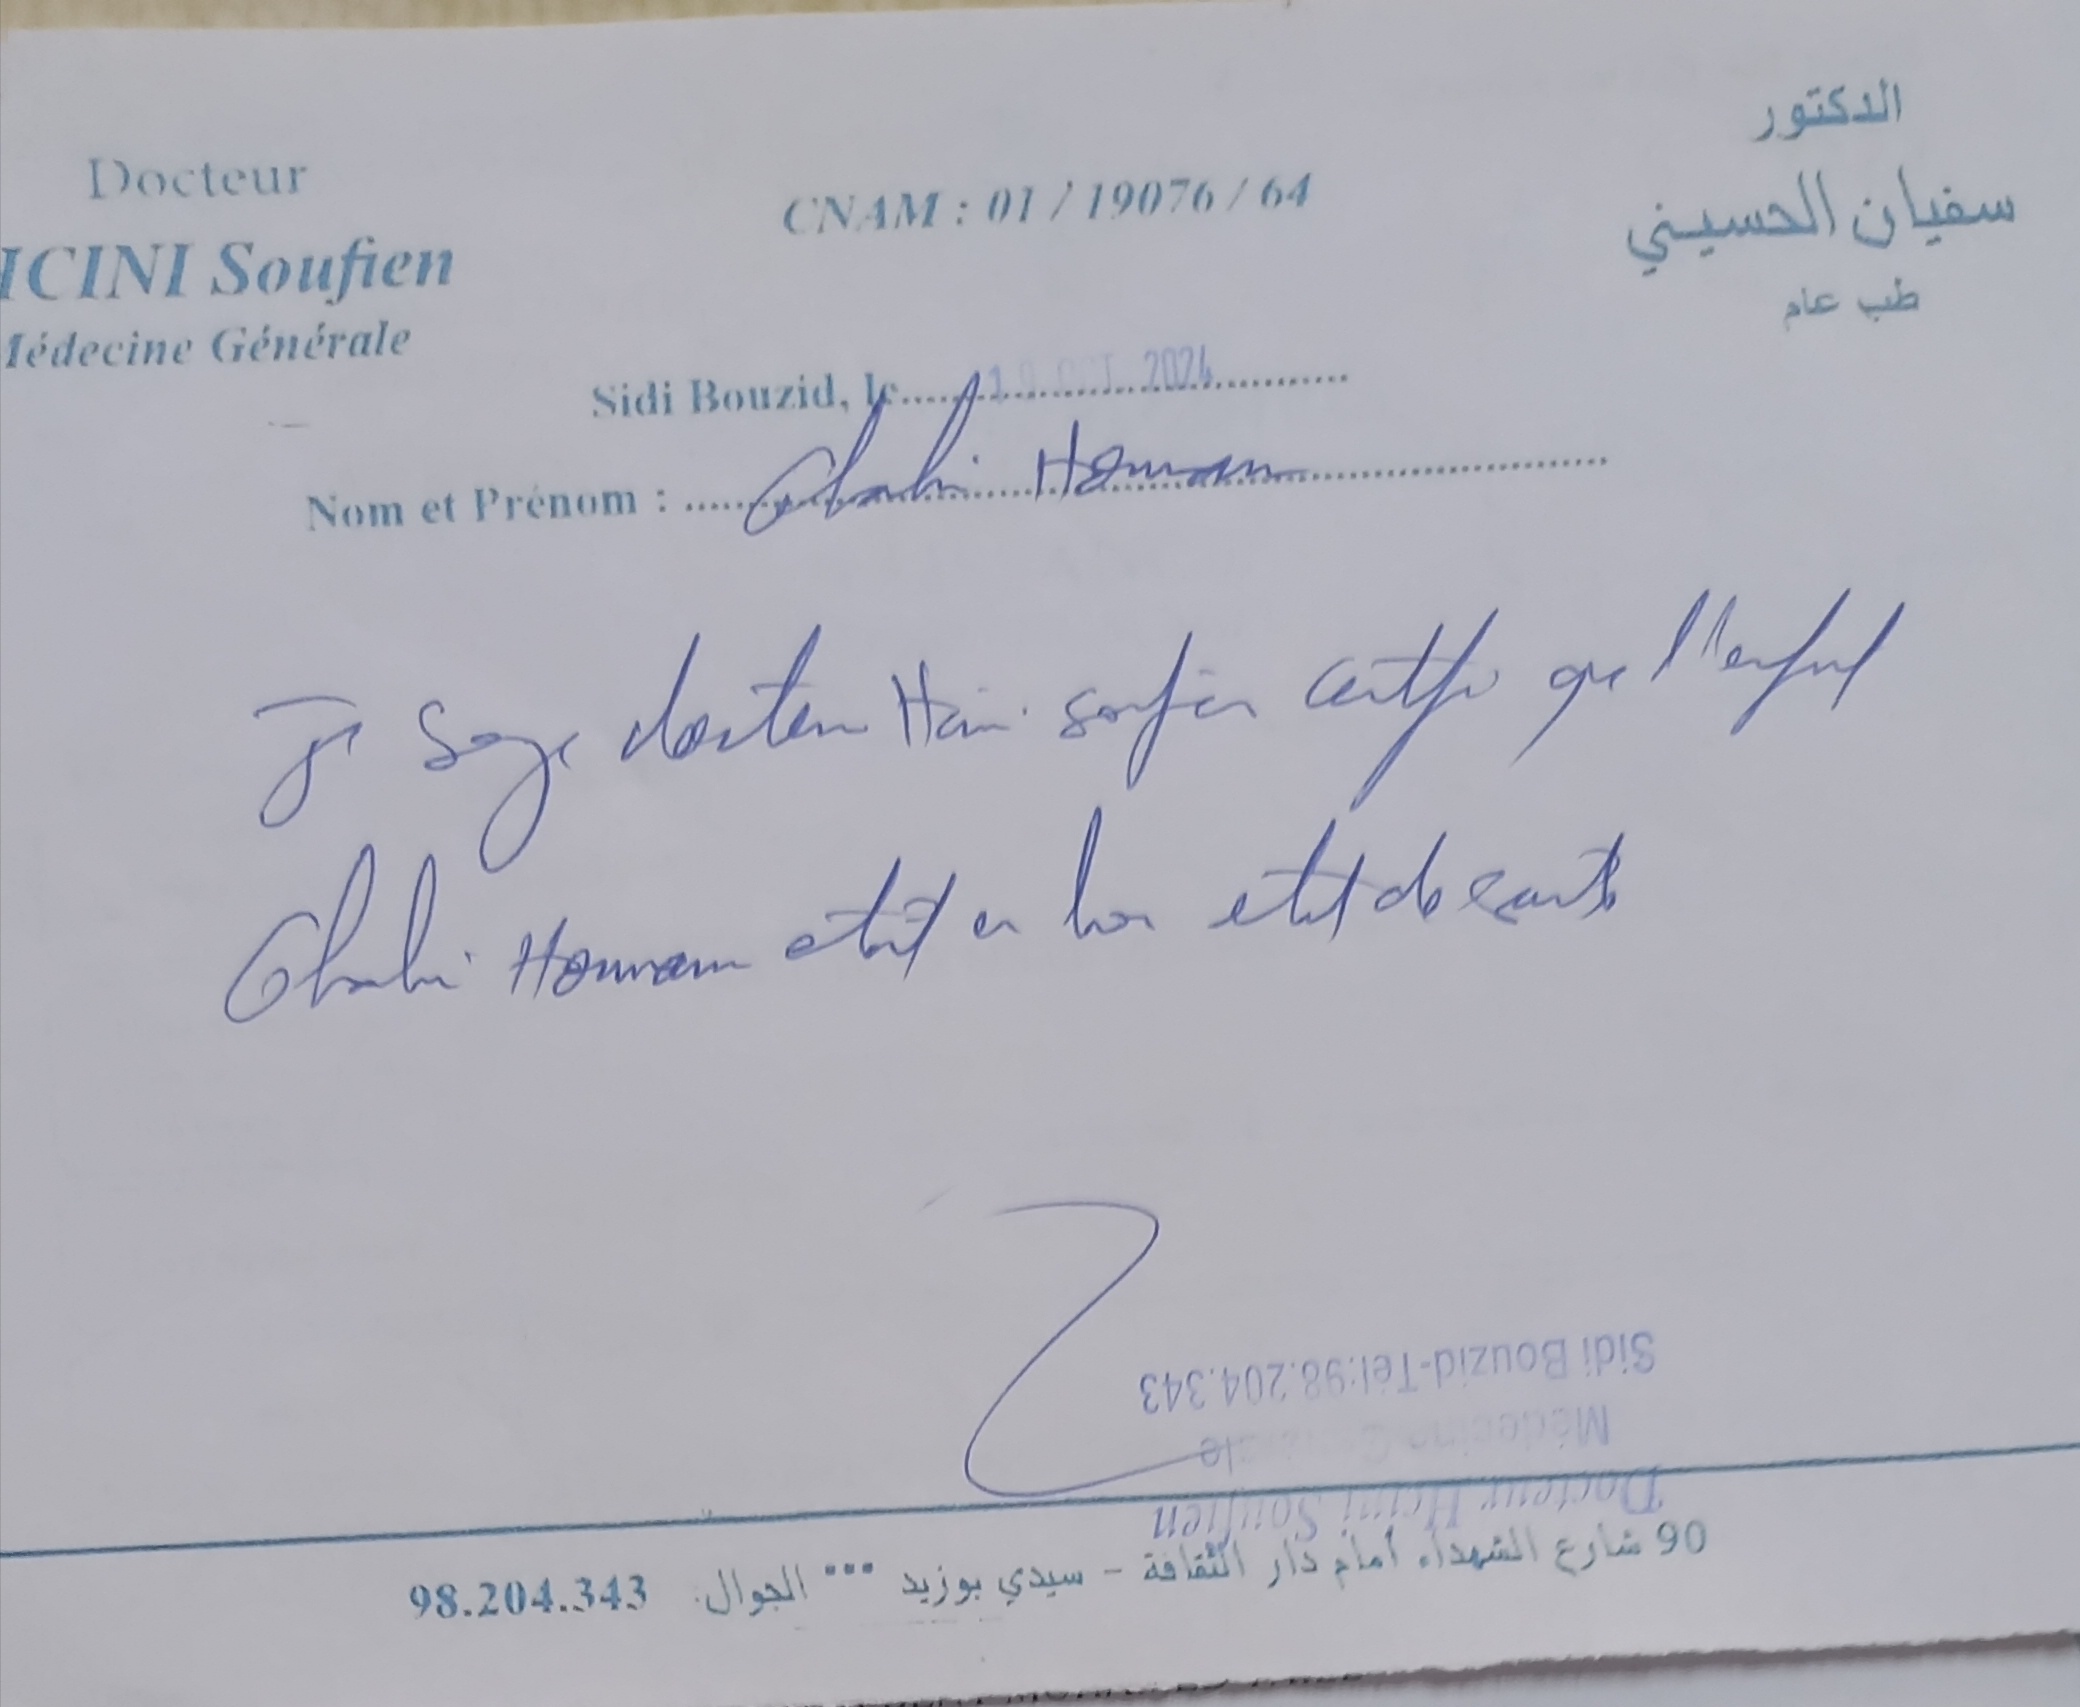 Docteur
ICINI Soufien
Médecine Générale
CNAM : 01 / 19076 / 64
الدكتور
سفيان الحسيني
طب عام
Sidi Bouzid, le 10 OCT. 2024
Nom et Prénom : Ghabi Hommam
je docteur Hcini soufien certifie que l'enfant
Ghabi Hommam etait en bon etat de santé
Docteur Hcini Soufien
Médecine Générale
Sidi Bouzid-Tél:98.204.343
90 شارع الشهداء أمام دار الثقافة - سيدي بوزيد *** الجوال: 98.204.343